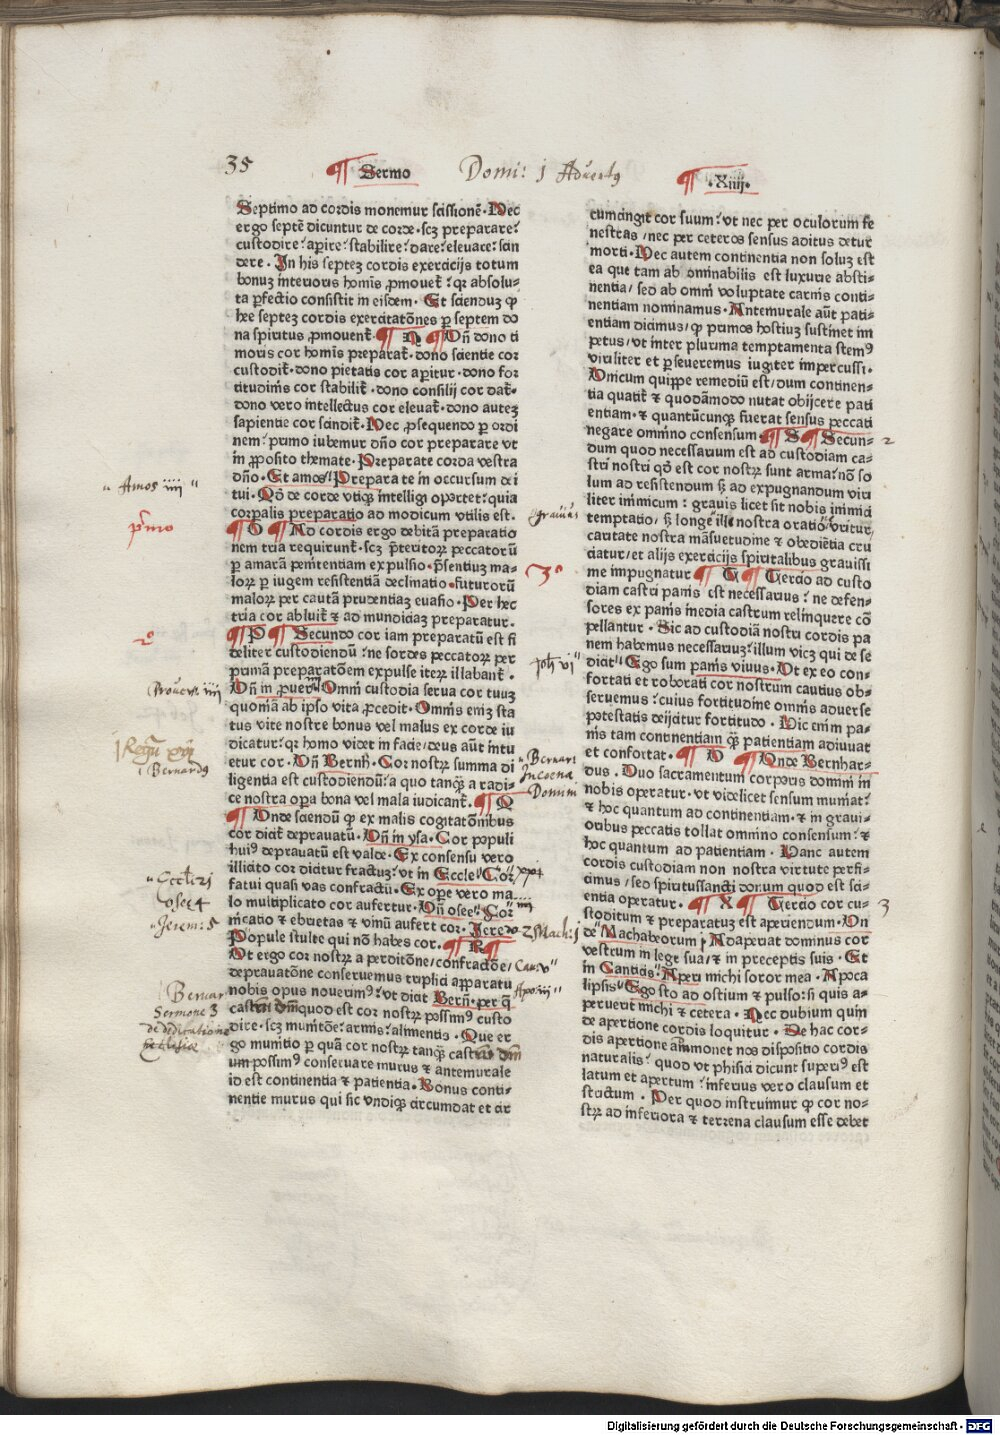 35
Sermo
Domi: j Advertꝰ
.Xiiij.
Septimo ad cordis monemur scissionē. Nec
ergo septē dicuntur de corde. scȝ preparare?
custodire? aperire? stabilire? dare? eleuare? scin
dere. In his septeȝ cordis exercicijs totum
bonuȝ interioris homis ꝓmouet᷑? qꝛ absolu-
ta ꝑfectio consistit in eisdem. Et scienduȝ ꝙ
hee septeȝ cordis exercitatōnes ꝑ septem do
na spiritus ꝓmouent᷑. ¶ N ¶ Dn̄ dono ti
moris cor homis preparat᷑. dono scientie cor
custodit᷑. dono pietatis cor aꝑitur. dono for
titudinis cor stabilit᷑. dono consilij cor dat᷑.
dono vero intellectus cor eleuat᷑. dono auteȝ
sapientie cor scindit᷑. Nec ꝓsequendo ꝑ ordi
nem? primo iubemur dn̄o cor preparare vt
in ꝓposito themate. Preparate corda vestra
dn̄o. Et amos Preparate in occursum dei
tui. Qō de corde vtiqꝫ intelligi oportet? quia
corꝑalis preparatio ad modicum vtilis est.
¶ O ¶ Ad cordis ergo debitā preparatio
nem tria requirunt᷑. scȝ p̄teritoꝝ peccatorū
ꝑ amarā penitentiam expulsio. p̄sentiuȝ ma-
loꝝ ꝑ iugem resistentiā declinatio. futurorū
maloꝝ per cautā prudentiaȝ euasio. Per hec
tria cor abluit᷑ ⁊ ad mundiciaȝ preparatur.
¶ P ¶ Secundo cor iam preparatū est fi
deliter custodiendū? ne sordes peccatoꝝ per
primā preparatōem expulse iteꝝ illabant᷑.
Dn̄ in ꝓuer. iiij Omni custodia serua cor tuuȝ
quoniā ab ipso vita ꝓcedit. Omnis eniȝ sta
tus vite nostre bonus vel malus ex corde iu
dicatur? qꝛ homo videt in facie, deus aūt intu
etur cor. Dn̄ Bernh̄. Cor nostꝝ summa di
ligentia est custodiendū? a quo tanqȝ a radi-
ce nostra oꝑa bona vel mala iudicant᷑. ¶ Q
¶ Unde sciendū ꝙ ex malis cogitatōnibus
cor dicit᷑ deprauatū. Dn̄ in ysa. Cor populi
huiꝰ deprauatū est valde. Ex consensu vero
illicito cor dicitur fractuȝ? vt in Eccle. Cor xxi
fatui quasi vas confractū. Ex oꝑe vero ma
lo multiplicato cor aufertur. Dn̄ osee. Cor iiij
nicatio ⁊ ebrietas ⁊ vinū aufert cor. Jere. v
Popule stulte qui nō habes cor. ¶ R ¶
Ut ergo cor nostꝝ a perditōne, confractōe,
deprauatōne conseruemus triplici apparatu
nobis opus nouerimꝰ? vt dicit Bern̄. per q̄
castrū dn̄i quod est cor nostꝝ possimꝰ custo
dire. scȝ munitōe? armis? alimentis. Que er
go munitio ꝑ quā cor nostꝝ tanqȝ castrū dn̄i
um possimꝰ conseruare murus ⁊ antemurale
id est continentia ⁊ patientia. Bonus conti-
nentie murus qui sic vndiqꝫ circumdat et cir
cumcingit cor suum? vt nec per oculorum fe
nestras, nec per ceteros sensus aditus detur
morti. Nec autem continentia non soluȝ est
ea que tam ab ominabilis est luxurie absti-
nentia, sed ab omni voluptate carnis conti-
nentiam nominamus. Antemurale aūt pati-
entiam dicimus, ꝙ primos hostiuȝ sustinet im
petus, vt inter plurima temptamenta stemꝰ
viriliter et ꝑseueremus iugiter impercussi.
Unicum quippe remediū est, dum continen-
tia quatit᷑ ⁊ quodāmodo nutat obijcere pati
entiam. ⁊ quantūcunqꝫ fuerat sensus peccati
negare omnino consensum. ¶ S ¶ Secun- 2
dum quod necessarium est ad custodiam ca-
stri nostri qō est cor nostꝝ sunt arma? nō so
lum ad resistendum sȝ ad expugnandum viri
liter inimicum? grauis licet sit nobis inimici
temptatio, sȝ longe illi nostra oratio, vritur,
caritate nostra māsuetudine ⁊ obediētia cru
ciatur, et alijs exercicijs spiritalibus grauissi
me impugnatur. ¶ T ¶ Tercio ad custo
diam castri panis est necessarius? ne defen-
sores ex panis inedia castrum relinquere cō
pellantur. Sic ad custodiā nostri cordis pa
nem habemus necessariuȝ? illum viȝ qui de se
dicit Ego sum panis viuus. Ut ex eo con-
fortati et roborati cor nostrum cautius ob-
seruemus? cuius fortitudine omnis aduerse
potestatis deijcitur fortitudo. Hic enim pa-
nis tam continentiam qȝ patientiam adiuuat
et confortat. ¶ U ¶ Unde Bernhar-
dus. Duo sacramentum corporis domini in
nobis operatur. vt videlicet sensum minuat?
⁊ hoc quantum ad continentiam. ⁊ in graui-
oribus peccatis tollat omnino consensum? ⁊
hoc quantum ad patientiam. Hanc autem
cordis custodiam non nostra virtute perfi-
cimus, sed spiritussancti donum quod est sci-
entia operatur. ¶ X ¶ Tercio cor cu- 3
stoditum ⁊ preparatuȝ est aperiendum. Dn
de Machabeorum j Adaperiat dominus cor
vestrum in lege sua, ⁊ in preceptis suis. Et
in Canticis. Aperi michi soror mea. Apoca
lipsis Ego sto ad ostium ⁊ pulso? si quis a-
peruerit michi ⁊ cetera. Nec dubium quin
de apertione cordis loquitur. De hac cor-
dis apertione āmmonet nos dispositio cordis
naturalis? quod vt phisici dicunt superiꝰ est
latum et apertum? inferius vero clausum et
strictum. Per quod instruimur ꝙ cor no-
stꝝ ad inferiora ⁊ terrena clausum esse debet
Amos iiij
pͥmo
2º
Prouer iiij
j Regū xvj
Bernardꝰ
Eccli 21
Osee 4
Jerem: 5
Bernar
Sermone 3
de dedicatione
ecclesiæ
grauius
3º
Joh vj
Bernar
In coena
Domini
2 Mach: j
Can: v
Apo iij
Digitalisierung gefördert durch die Deutsche Forschungsgemeinschaft - DFG